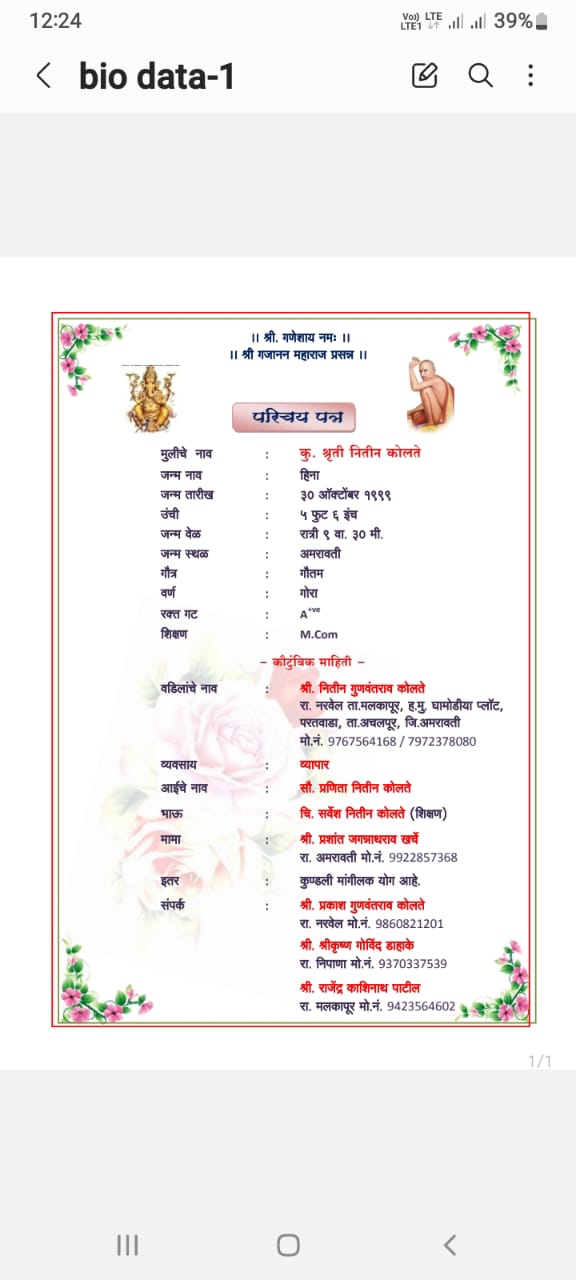 12:24
Vo)) LTE
LTE1
39%
bio data-1
।। श्री. गणेशाय नमः ।।
।। श्री गजानन महाराज प्रसन्न ।।
परिचय पत्र
मुलीचे नाव : कु. श्रृती नितीन कोलते
जन्म नाव : हिना
जन्म तारीख : ३० ऑक्टोंबर १९९९
उंची : ५ फुट ६ इंच
जन्म वेळ : रात्री ९ वा. ३० मी.
जन्म स्थळ : अमरावती
गौत्र : गौतम
वर्ण : गोरा
रक्त गट : A+ve
शिक्षण : M.Com
– कौटुंबिक माहिती –
वडिलांचे नाव : श्री. नितीन गुणवंतराव कोलते
रा. नरवेल ता.मलकापूर, ह.मु. घामोडीया प्लॉट,
परतवाडा, ता.अचलपूर, जि.अमरावती
मो.नं. 9767564168 / 7972378080
व्यवसाय : व्यापार
आईचे नाव : सौ. प्रणिता नितीन कोलते
भाऊ : चि. सर्वेश नितीन कोलते (शिक्षण)
मामा : श्री. प्रशांत जगन्नाथराव खर्चे
रा. अमरावती मो.नं. 9922857368
इतर : कुण्डली मांगीलक योग आहे.
संपर्क : श्री. प्रकाश गुणवंतराव कोलते
रा. नरवेल मो.नं. 9860821201
श्री. श्रीकृष्ण गोविंद डाहाके
रा. निपाणा मो.नं. 9370337539
श्री. राजेंद्र काशिनाथ पाटील
रा. मलकापूर मो.नं. 9423564602
1/1